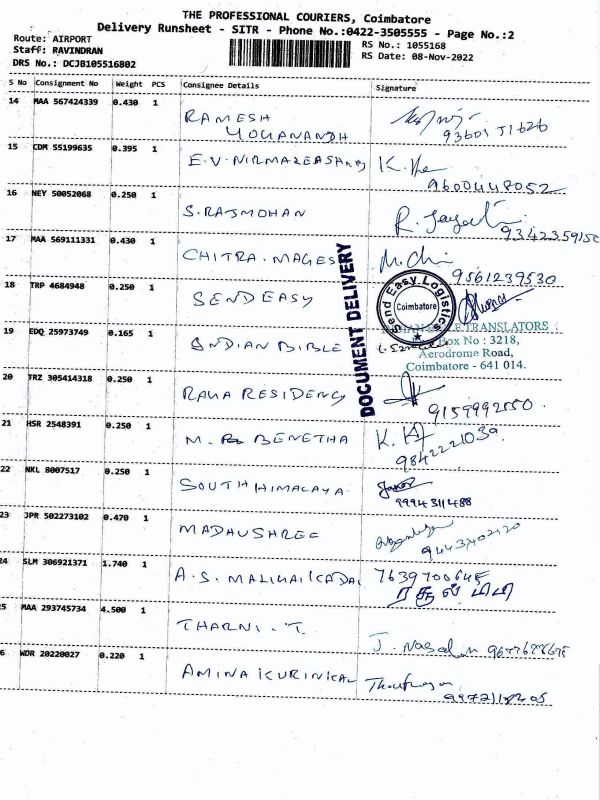 THE PROFESSIONAL COURIERS, Coimbatore
Delivery Runsheet - SITR - Phone No.:0422-3505555 - Page No.:2
Route: AIRPORT
Staff: RAVINDRAN
DRS No.: DCJB105516802
RS No.: 1055168
RS Date: 08-Nov-2022
S No Consignment No Weight PCS Consignee Details Signature
14 MAA 567424339 0.430 1 RAMESH
YOGANANDH
15 CDM 55199635 0.395 1 E.V. K.
9600448052
16 NEY 50052068 0.250 1 S.RAJMOHAN R.
9342359150
17 MAA 569111331 0.430 1 CHITRA.MAGES
9561239530
18 TRP 4684948 0.250 1 SENDEASY
Send Easy Logistics
Coimbatore
DOCUMENT DELIVERY
19 EDQ 25973749 0.165 1 INDIAN BIBLE
TRANSLATORS
Box No : 3218,
Aerodrome Road,
Coimbatore - 641 014.
20 TRZ 305414318 0.250 1 RAHA RESIDENCY
21 HSR 2548391 0.250 1 M. BENETHA K.
9842221039
22 NKL 8007517 0.250 1 SOUTH HIMALAYA
9994311488
23 JPR 502273102 0.470 1 MADHUSHREE
9443402120
24 SLM 306921371 1.740 1 A.S. MALIGAI KADAI 7639700645
25 MAA 293745734 4.500 1 THARNI.T. J.
26 WDR 20220027 0.220 1 AMINA KURINKAL